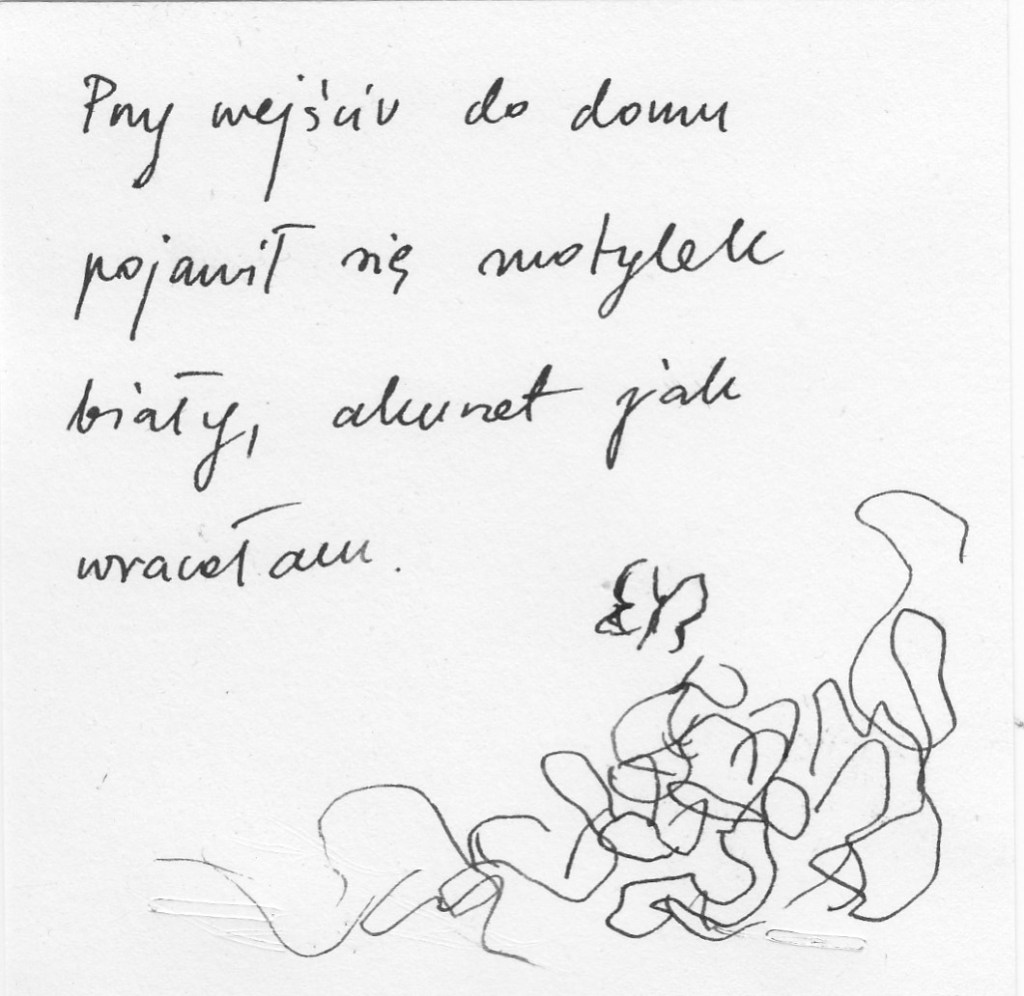 Przy wejściu do domu
pojawił się motylek
biały, akurat jak
wracałam.